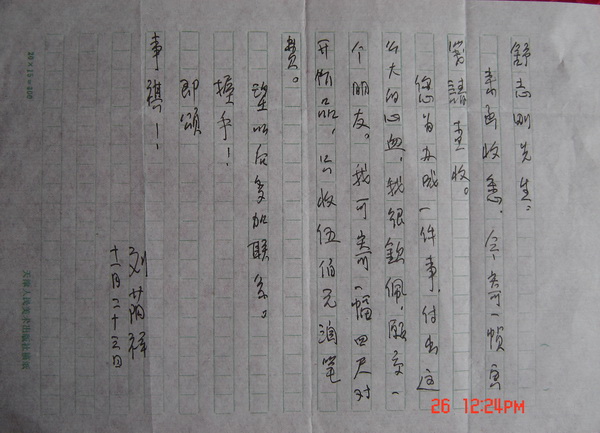 舒志刚先生。
来函收悉，今寄一帧
請查收。
您为办成一件事，付出这
么大的心血，我很钦佩，愿交一
个朋友。我可寄一幅四尺对
开作品，只收伍佰元润笔
费。
望以后多加联系。
握手！
即颂
事祺！
刘荫祥
十一月二十三日
20×15=300
26 12:24PM